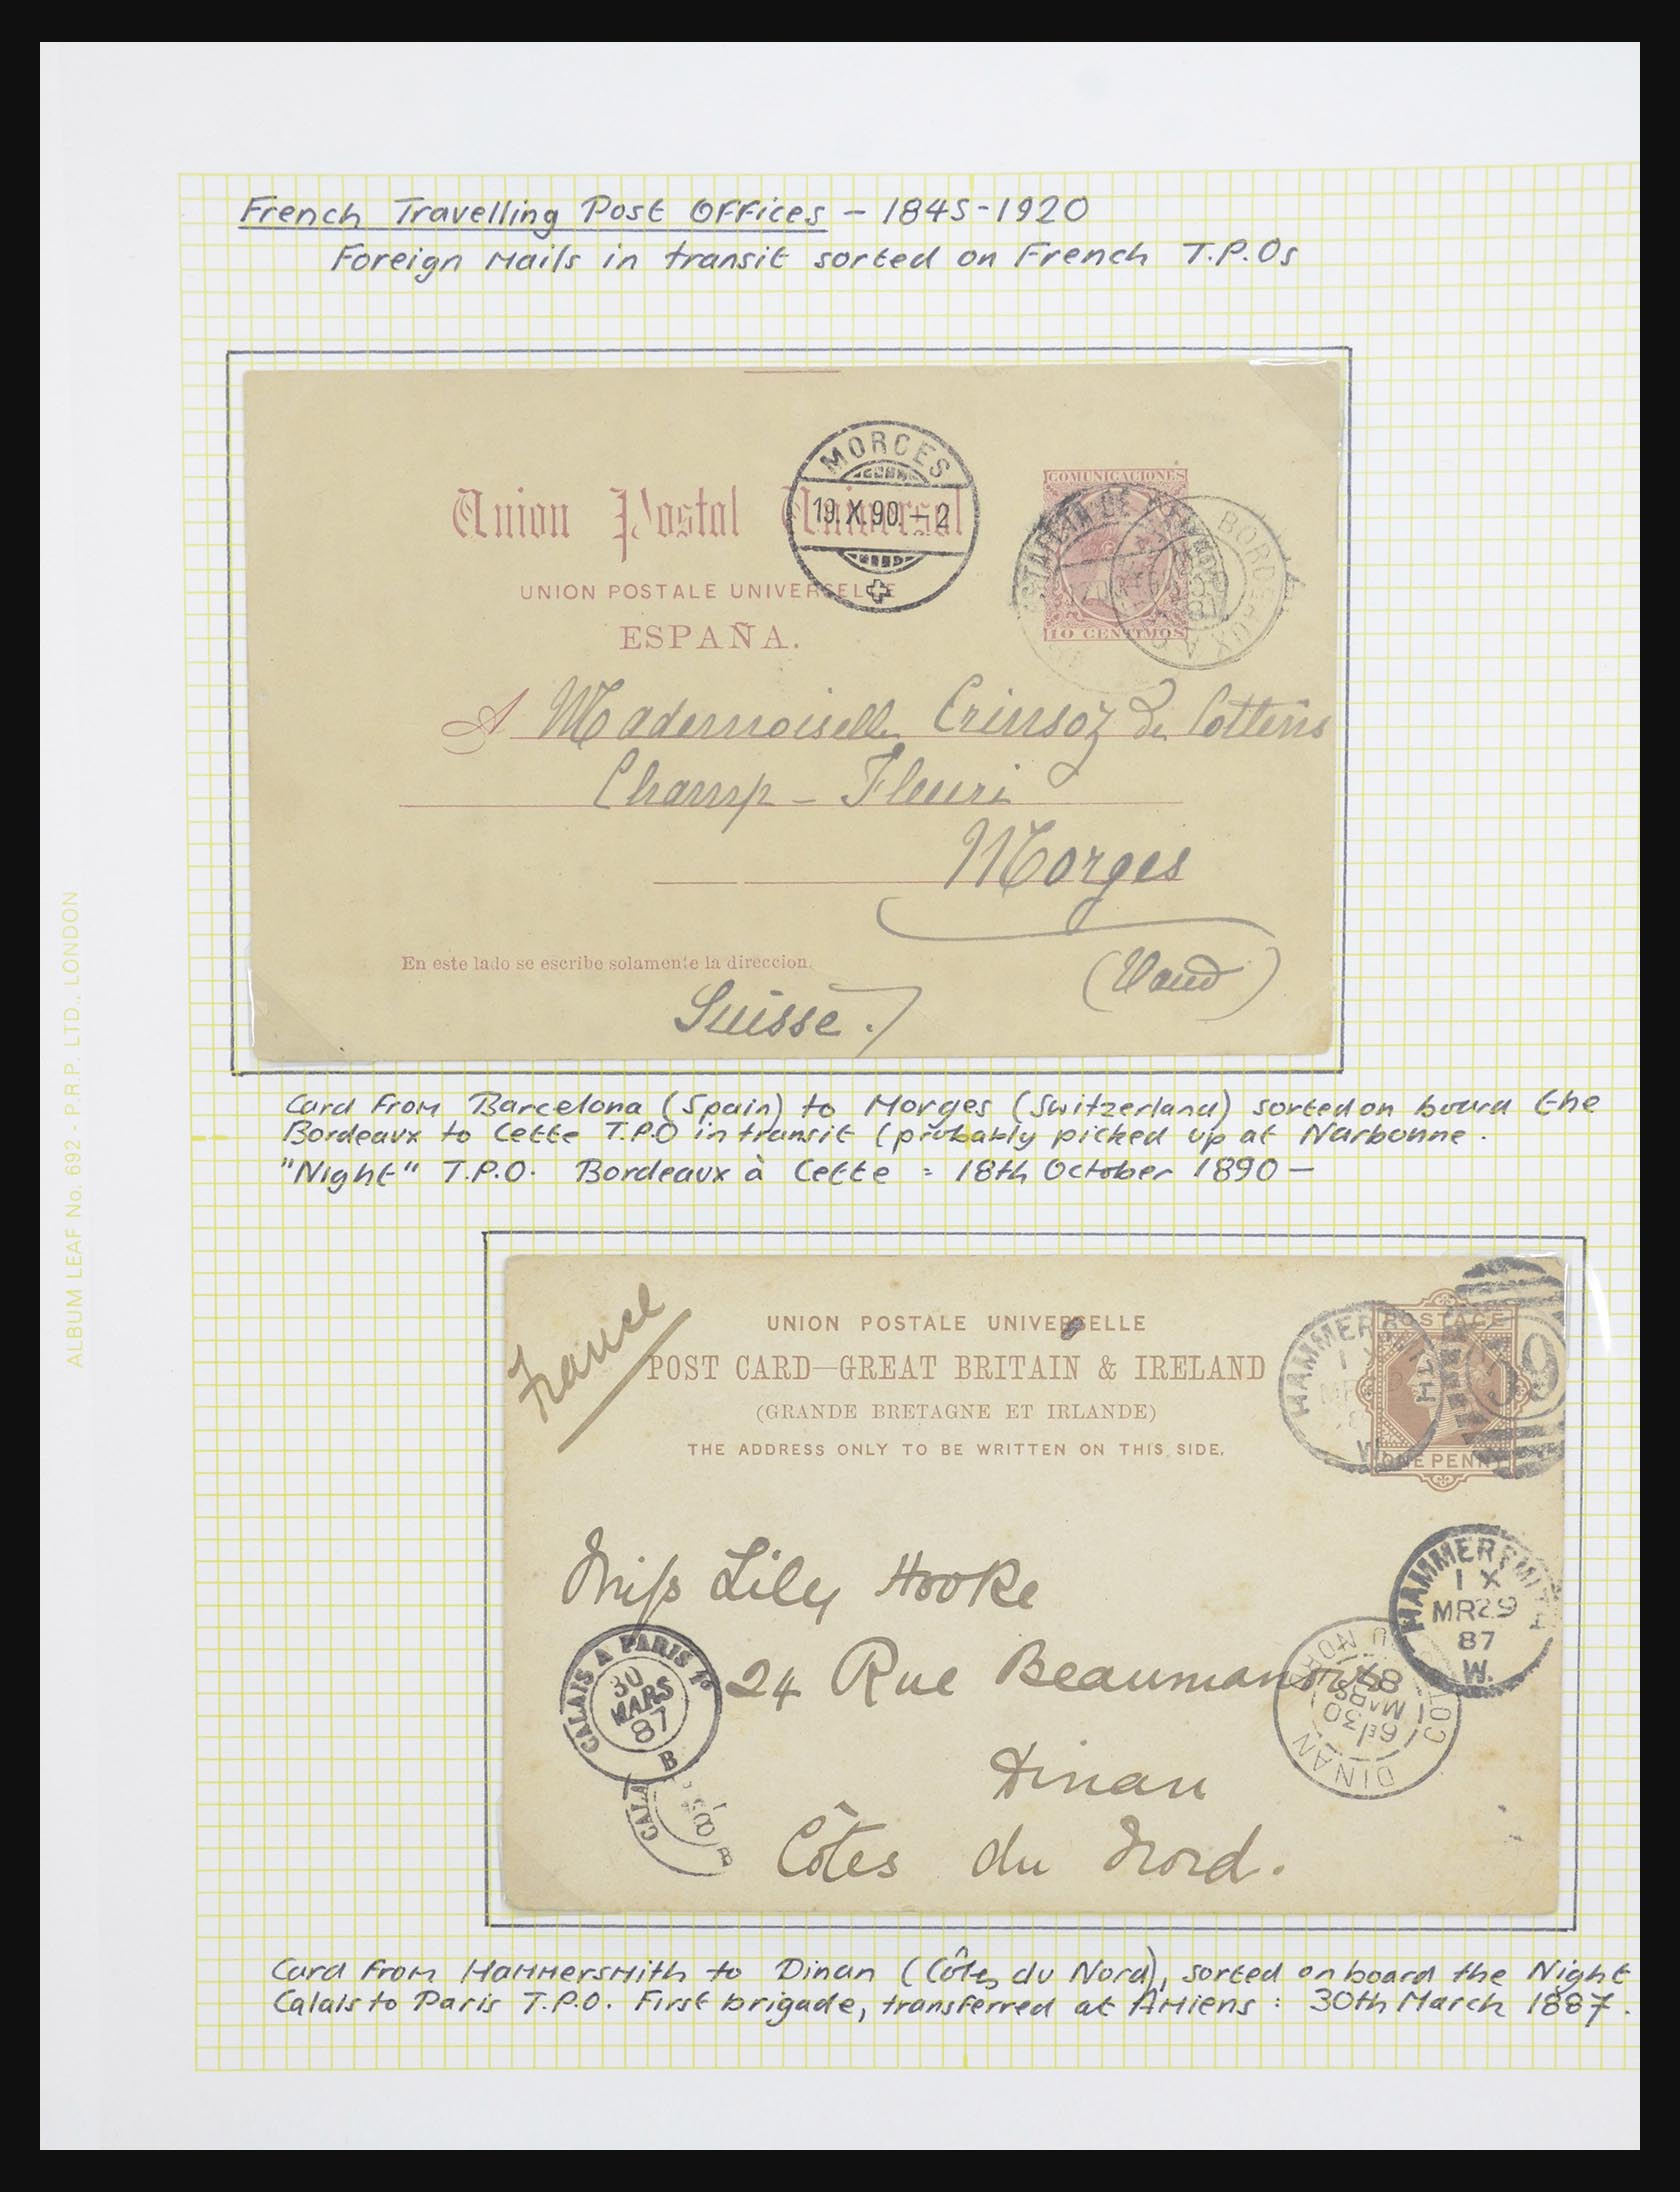 French Travelling Post Offices – 1845-1920
Foreign Mails in transit sorted on French T.P.Os
MORGES
19.X.90.–2
Union Postal Universal
UNION POSTALE UNIVERSELLE
ESPAÑA.
COMUNICACIONES
10 CENTIMOS
BORDEAUX A
A Mademoiselle Crinsoz de Cottens
Champ – Fleuri
Morges
(Vaud)
En este lado se escribe solamente la direccion.
Suisse.
Card from Barcelona (Spain) to Morges (Switzerland) sorted on board the
Bordeaux to Cette T.P.O in transit (probably picked up at Narbonne.
"Night" T.P.O. Bordeaux à Cette = 18th October 1890 –
France
UNION POSTALE UNIVERSELLE
POST CARD—GREAT BRITAIN & IRELAND
(GRANDE BRETAGNE ET IRLANDE)
THE ADDRESS ONLY TO BE WRITTEN ON THIS SIDE.
POSTAGE
ONE PENNY
HAMMERSMITH
W
HAMMERSMITH
1 X
MR29
87
W.
Miss Lily Hooke
24 Rue Beaumanoir
Dinan
Côtes du Nord.
CALAIS A PARIS 1º
30
MARS
87
B
CALA
B
DINAN
6E/30
MARS
87
COT DU NORD
Card from Hammersmith to Dinan (Côtes du Nord), sorted on board the Night
Calais to Paris T.P.O. First brigade, transferred at Amiens : 30th March 1887.
ALBUM LEAF No. 692 - P.R.P. LTD., LONDON